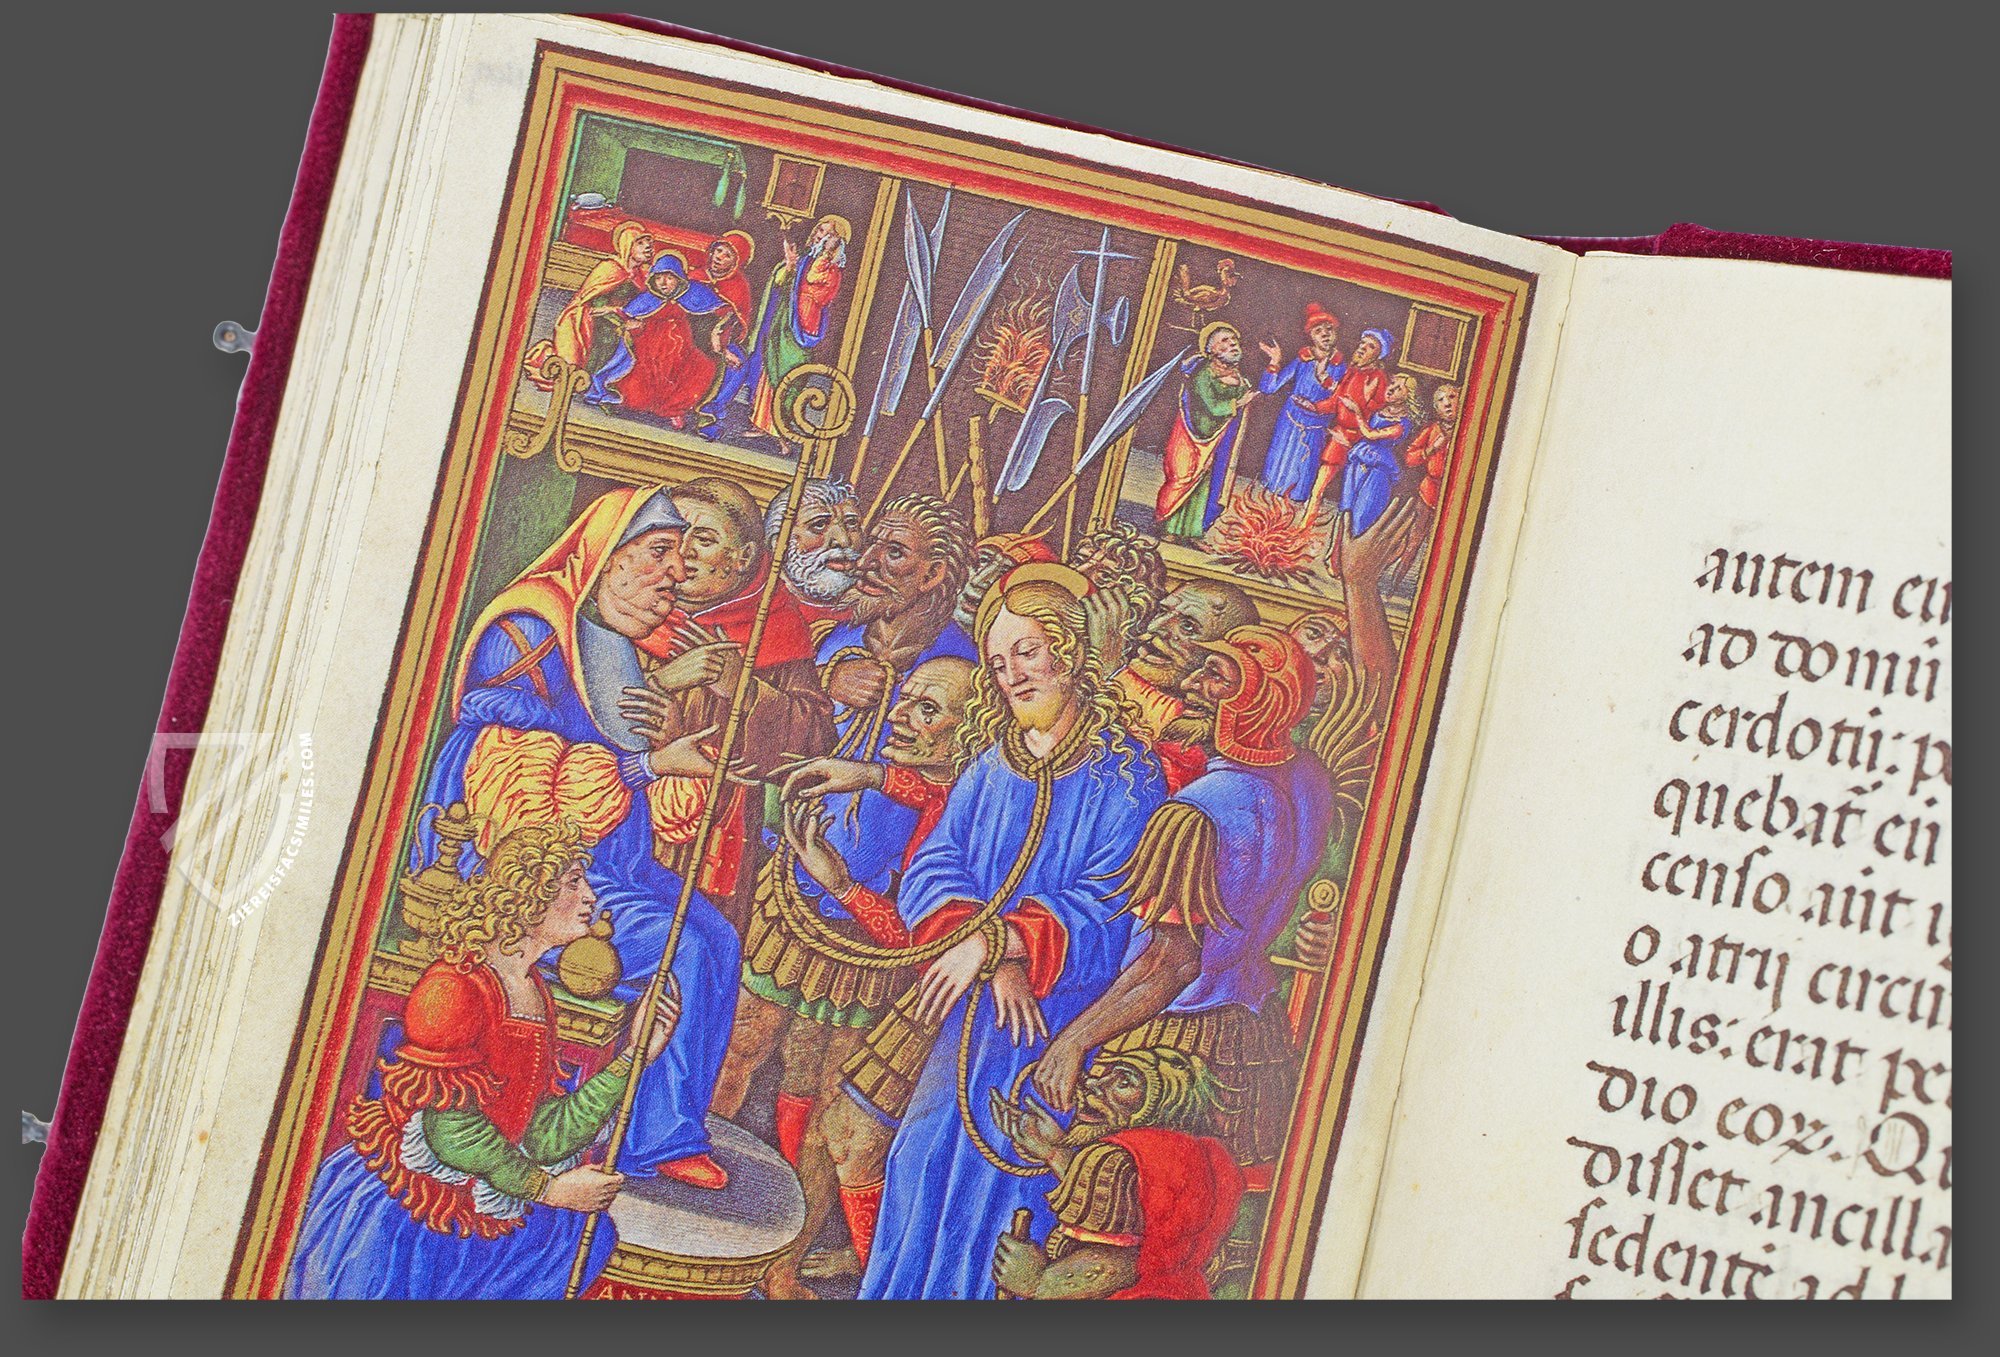 ZIEREISFACSIMILES.COM
ANN
autem eū
ad domū
cerdotū: p
quebat̄ eū
censo aūt i
o atrij circū
illis: erat pe
dio eoꝝ. Q
disset ancilla
sedentē ad l